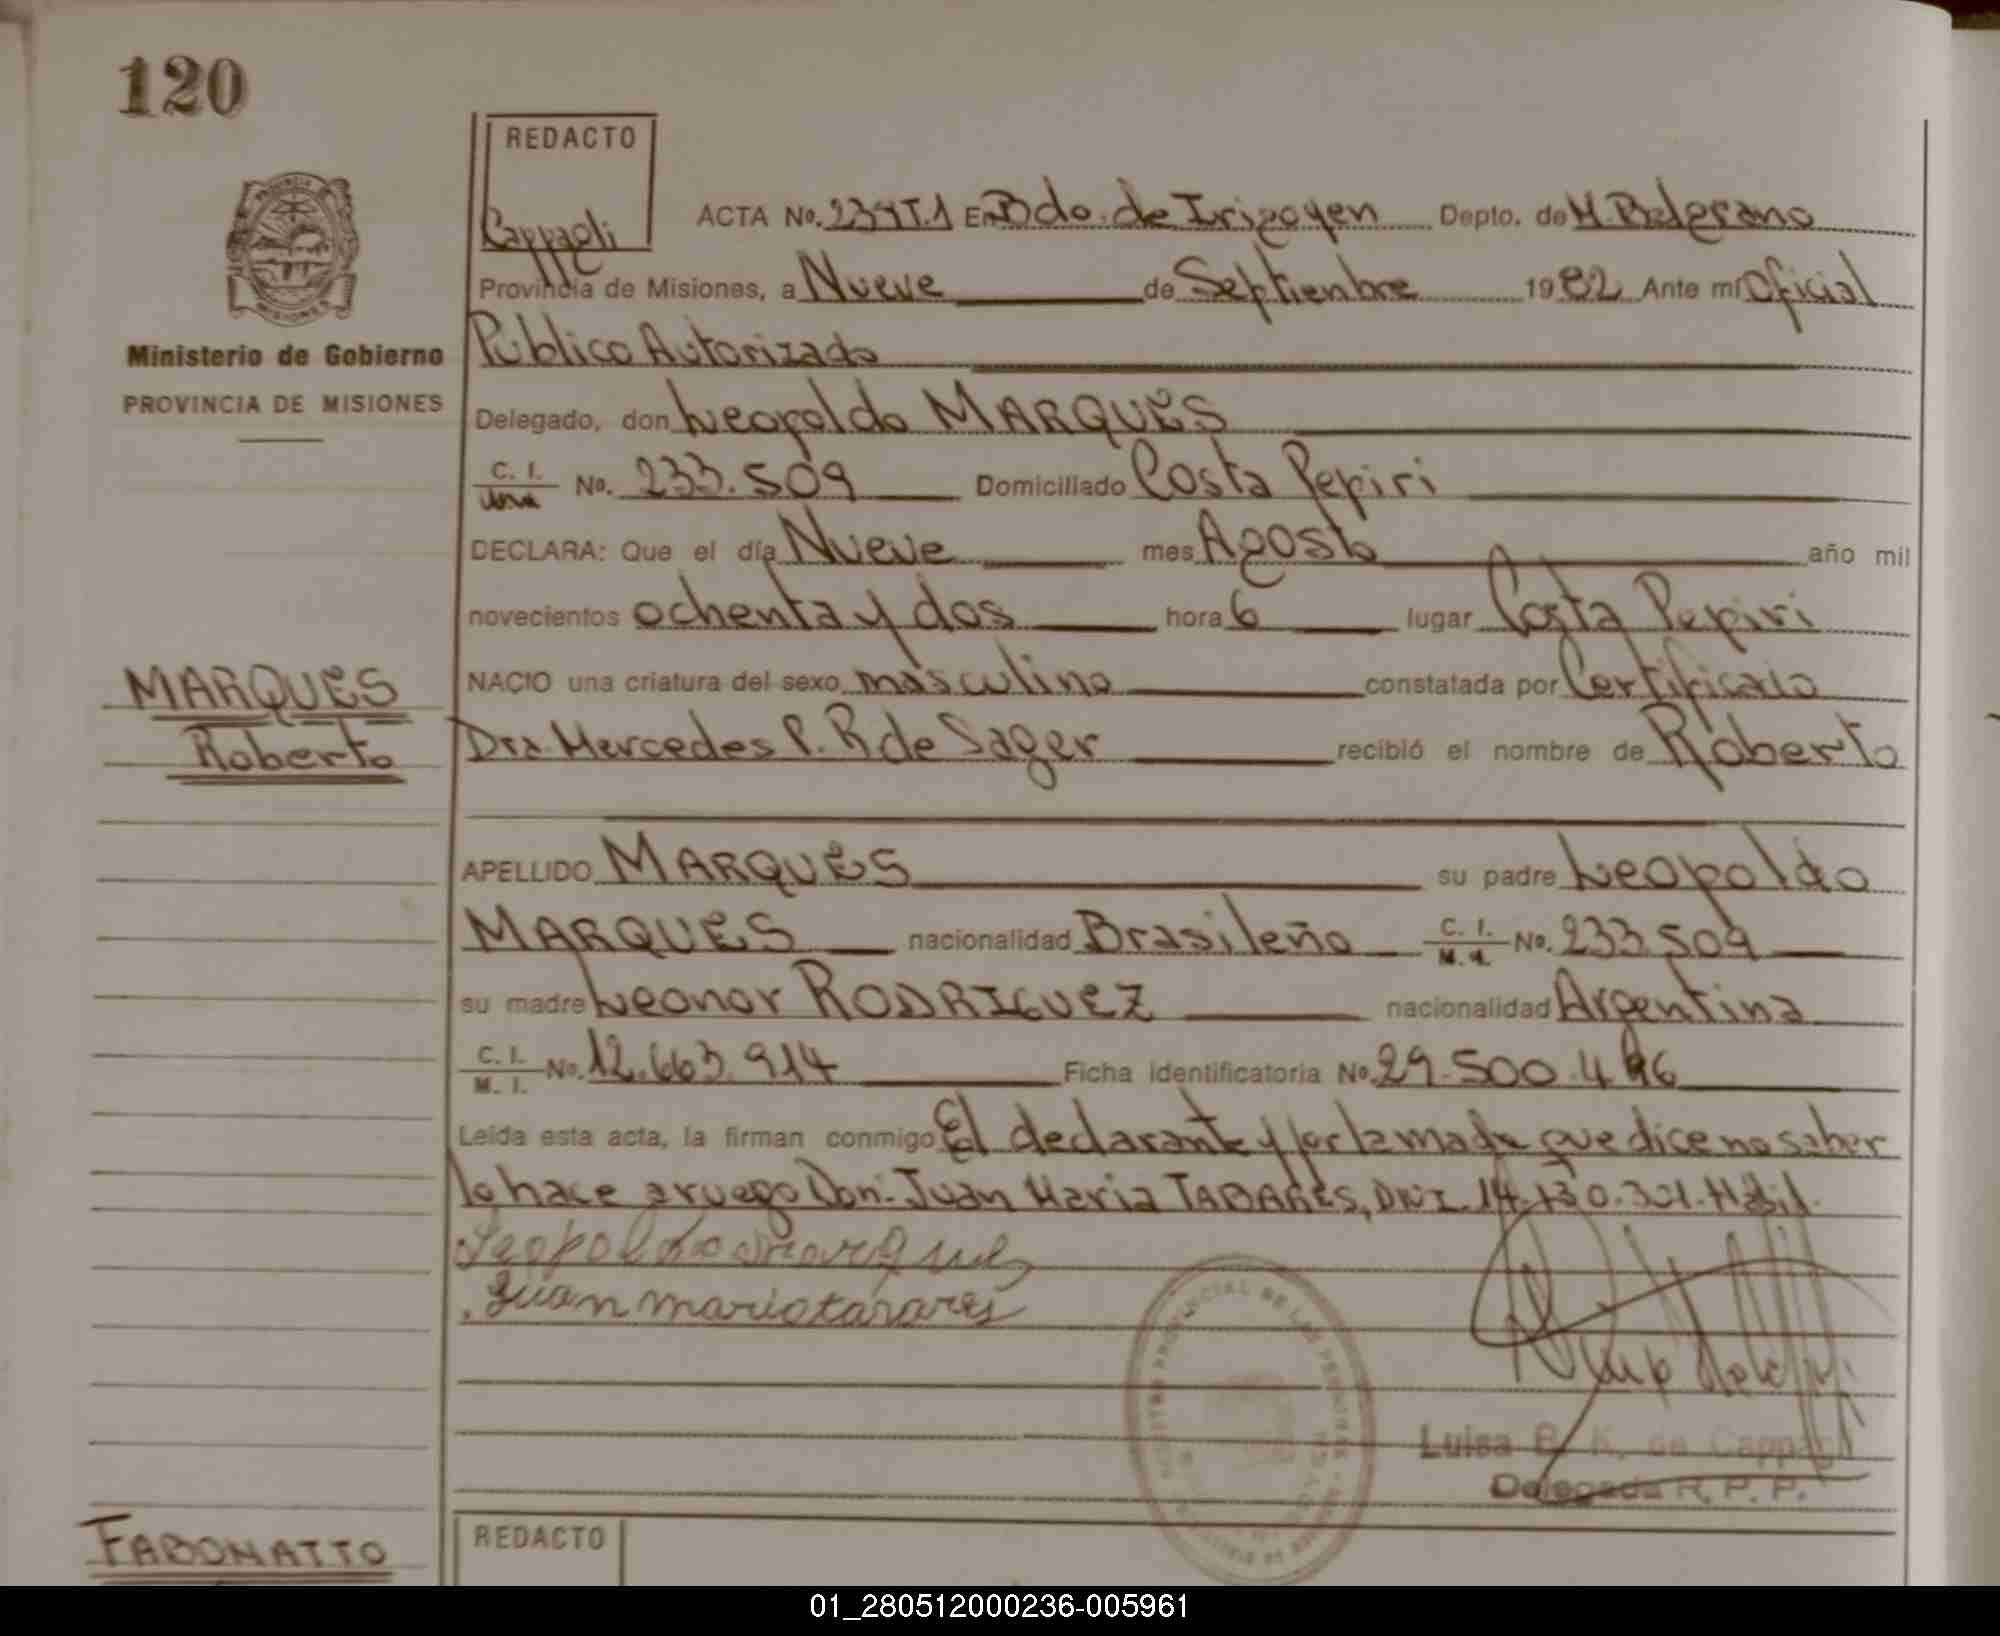 120
REDACTO
Cappagli
ACTA No. 234T.1 En Bdo. de Irigoyen Depto. de M. Belgrano
Provincia de Misiones, a Nueve de Septiembre 1982 Ante mi Oficial
Ministerio de Gobierno
Público Autorizado
PROVINCIA DE MISIONES
Delegado, don Leopoldo MARQUES
C. I. No. 233.509 Domiciliado Costa Pepiri
DECLARA: Que el día Nueve mes Agosto año mil
novecientos ochenta y dos hora 6 lugar Costa Pepiri
MARQUES
NACIO una criatura del sexo masculino constatada por Certificado
Roberto
Dra. Mercedes P. R de Sager recibió el nombre de Roberto
APELLIDO MARQUES su padre Leopoldo
MARQUES nacionalidad Brasileño C. I. M. I. No. 233.509
su madre Leonor RODRIGUEZ nacionalidad Argentina
C. I. M. I. No. 12.663.914 Ficha identificatoria No. 29.500.496
Leída esta acta, la firman conmigo El declarante y por la madre que dice no saber
lo hace a ruego Don. Juan Maria TABARES, DNI. 14.130.321. Hábil.
Leopoldo Marques
Juan maria tavares
REGISTRO PROVINCIAL DE LAS PERSONAS
Luisa B. K. de Cappagli
Delegada R. P. P.
FABONATTO
REDACTO
01_280512000236-005961